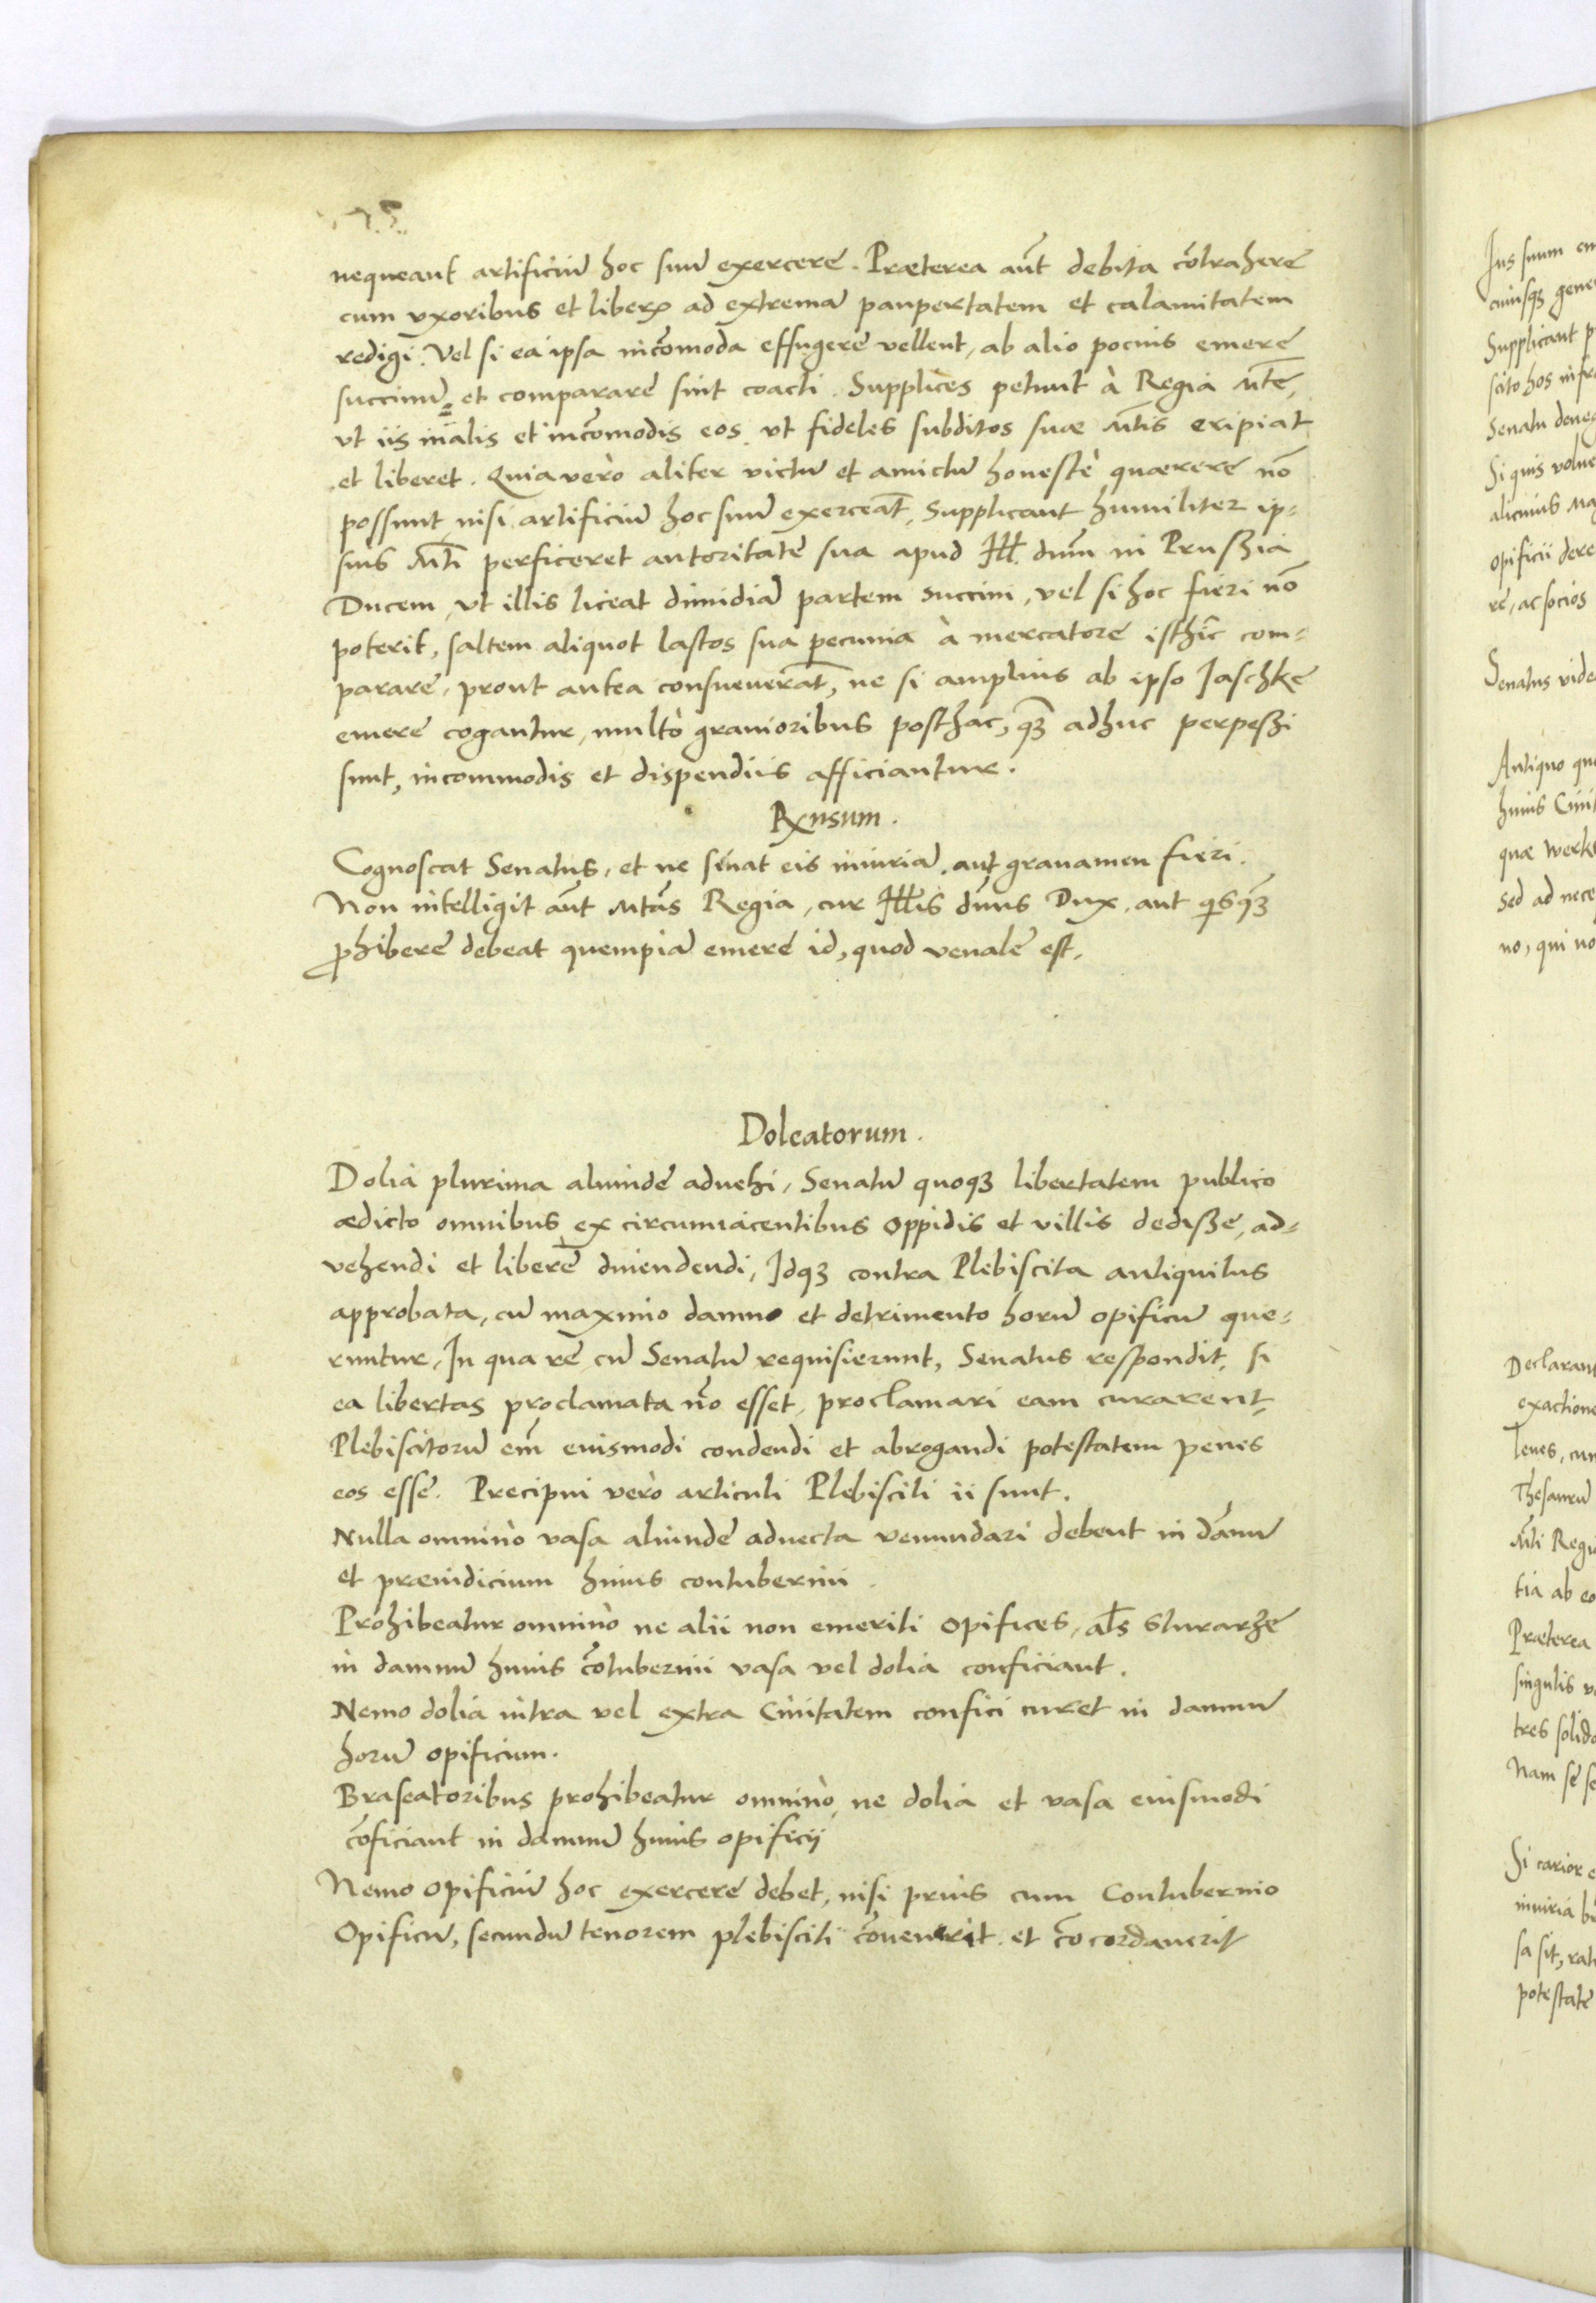 nequeant artificiū hoc suū exercere. Præterea aūt debita cōtrahere
cum vxoribus et liberꝭ ad extremā paupertatem et calamitatem
redigi. Vel si ea ipsa incōmoda effugere vellent, ab alio pocius emere
succinū, et comparare sint coacti. Supplices petunt à Regia Mte,
vt iis malis et incōmodis eos, vt fideles subditos suæ Mtis eripiat
et liberet. Quia vero aliter victū et amictū honestè quærere nō
possunt, nisi artificiū hoc suū exerceāt, Supplicant humiliter ip-
sius Mti perficeret autoritate sua apud Ill. dnm in Prußia
Ducem, vt illis liceat dimidiā partem succini, vel si hoc fieri nō
poterit, saltem aliquot lastos sua pecunia à mercatore isthic com-
parare, prout antea consueuerāt, ne si amplius ab ipso Jaschke
emere cogantur, multò grauioribus posthac, qȝ adhuc perpeßi
sunt, incommodis et dispendiis afficiantur.
Rxnsum.
Cognoscat Senatus, et ne sinat eis iniuriā, aut grauamen fieri.
Non intelligit aūt Mtas Regia, cur Illis dnus Dux, aut qisqȝ
ꝓhibere debeat quempiā emere id, quod venale est.
Doleatorum.
Dolia plurima aliunde aduehi, Senatū quoqȝ libertatem publico
ædicto omnibus ex circumiacentibus oppidis et villis dediße, ad-
vehendi et libere diuendendi, Idqȝ contra Plebiscita antiquitus
approbata, cū maximo damno et detrimento horū opificū que-
runtur, In qua re cū Senatū requisierunt, Senatus respondit, si
ea libertas proclamata nō esset, proclamari eam curarent,
Plebiscitorū em̄ euismodi condendi et abrogandi potestatem penes
eos esse. Precipui vero articuli Plebisciti ii sunt.
Nulla omnino vasa aliunde aduecta venundari debent in dānū
et præiudicium huius contubernii.
Prohibeatur omnino ne alii non emeriti opifices, als Sturarze
in damnū huius cōtubernii vasa vel dolia conficiant.
Nemo dolia intra vel extra Ciuitatem confici curet in damnū
horū opificum.
Braseatoribus prohibeatur omnino, ne dolia et vasa euismodi
cōficiant in damnū huius opificij
Nemo opificiū hoc exercere debet, nisi prius cum Contubernio
Opificū, secundū tenorem plebisciti cōuenerit et cōcordauerit
Ius suum
cuiusqȝ
Supplicant
scito hos
Senatu
Si quis
alicuius
opificii
re, ac socios
Senatus
Antiquo
huius
quæ
sed ad
no, qui
Declarant
Leues,
Thesaurū
Mti
tia ab
Præterea
singulis
tres
Nam se
Si carior
iniuria
sa sit,
potestate